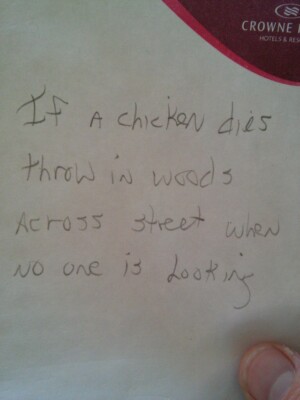 CROWNE P
HOTELS & RES
If A chicken dies
throw in woods
Across street when
No one is Looking